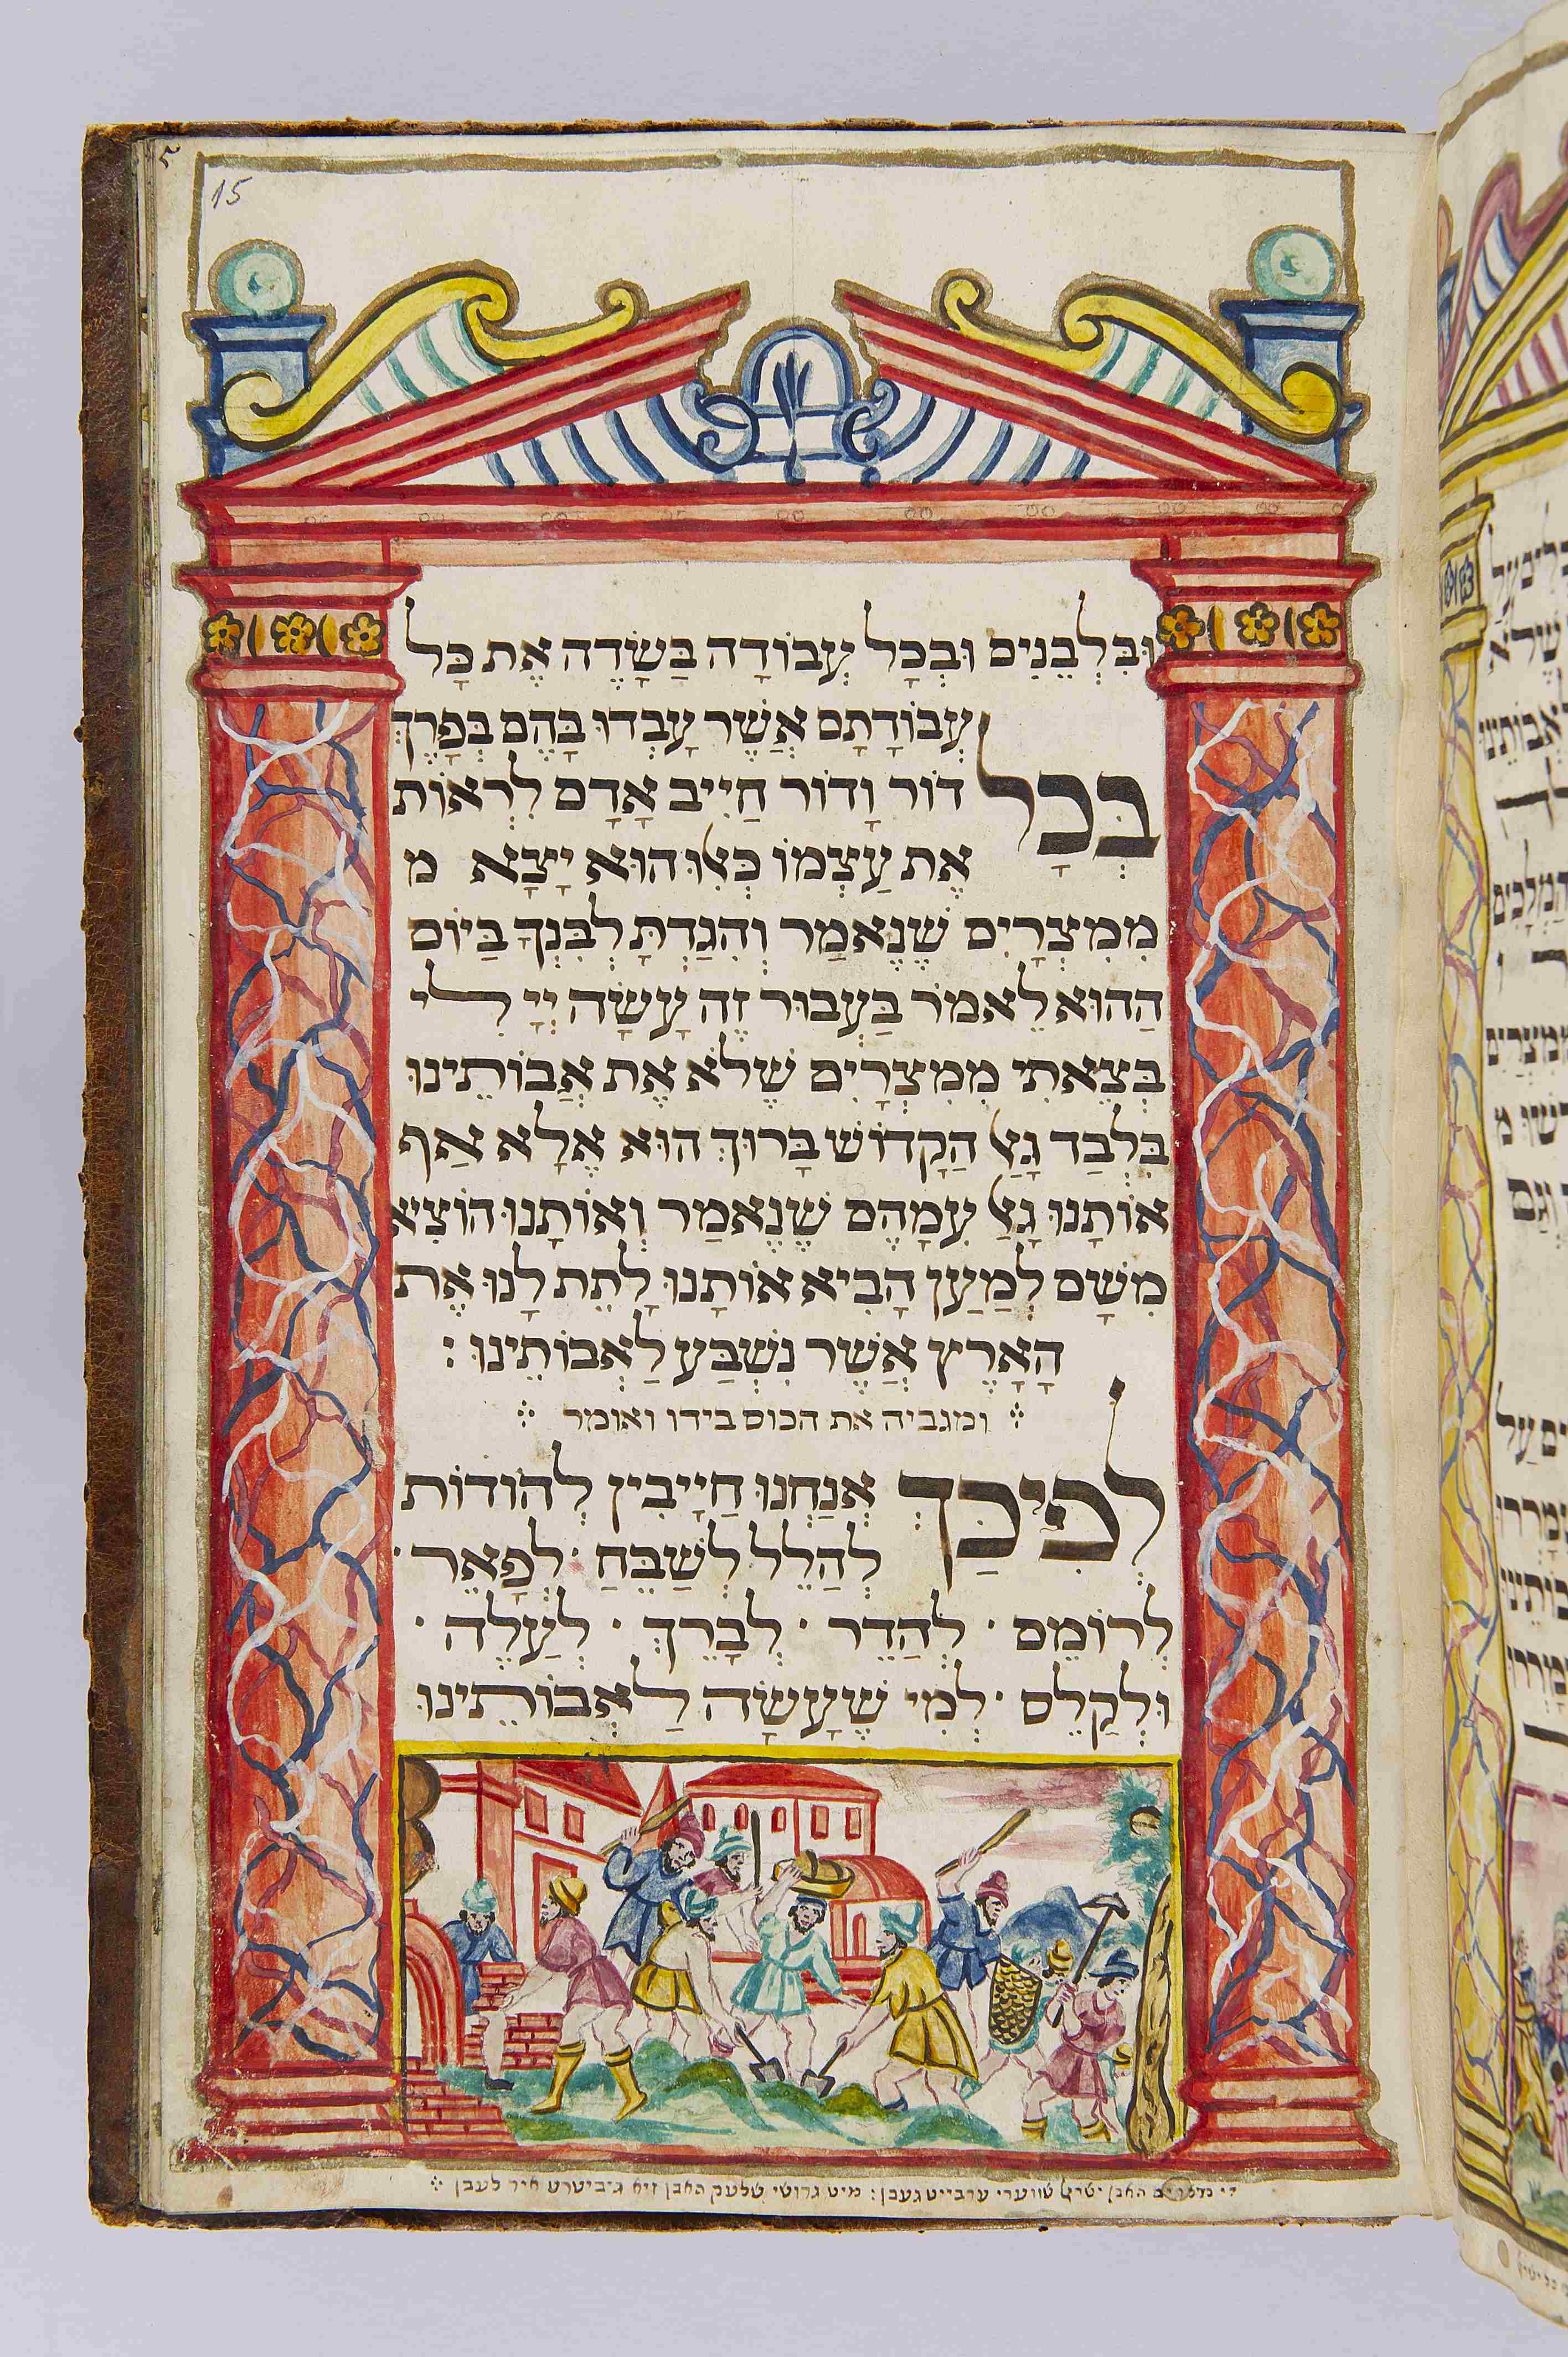 15
וּבִּלְבֵנִים וּבְכָל עֲבוֹדָה בַּשָׂדֶה אֶת כָּל
עֲבוֹדָתָם אֲשֶׁר עָבְדוּ בָּהֶם בְּפָרֶךְ
בְּכָל דוֹר וָדוֹר חַיִיב אָדָם לִרְאוֹת
אֶת עַצְמוֹ כְּאִלוּ הוּא יָצָא מ
מִמִצְרָיִם שֶׁנֶאֱמַר וְהִגַדְתָּ לְבִּנְךָ בַּיוֹם
הַהוּא לֵאמֹר בַּעֲבוּר זֶה עָשָׂה יְיָ לִי
בְּצֵאתִי מִמִצְרָיִם שֶׁלֹא אֶת אֲבוֹתֵינוּ
בִּלְבַד גָאַל הַקָדוֹשׁ בָּרוּךְ הוּא אֶלָא אַף
אוֹתָנוּ גָאַל עִמָהֶם שֶׁנֶאֱמַר וְאוֹתָנוּ הוֹצִיא
מִשָׁם לְמַעַן הָבִיא אוֹתָנוּ לָתֵת לָנוּ אֶת
הָאָרֶץ אֲשֶׁר נִשְׁבַּע לַאֲבוֹתֵינוּ :
ומגביה את הכוס בידו ואומר
לְפִיכַךְ אֲנַחְנוּ חַיָיבִין לְהוֹדוֹת
לְהַלֵל לְשַׁבֵּחַ · לְפָאֵר ·
לְרוֹמֵם · לְהַדֵר · לְבָרֵךְ · לְעַלֵה ·
וּלְקַלֵס · לְמִי שֶׁעָשָׂה לַאֲבוֹתֵינוּ
האבן שווערי ערבייט געבן : מיט גרושי שלעק האבן זיא ג׳ביטרט איר לעבן